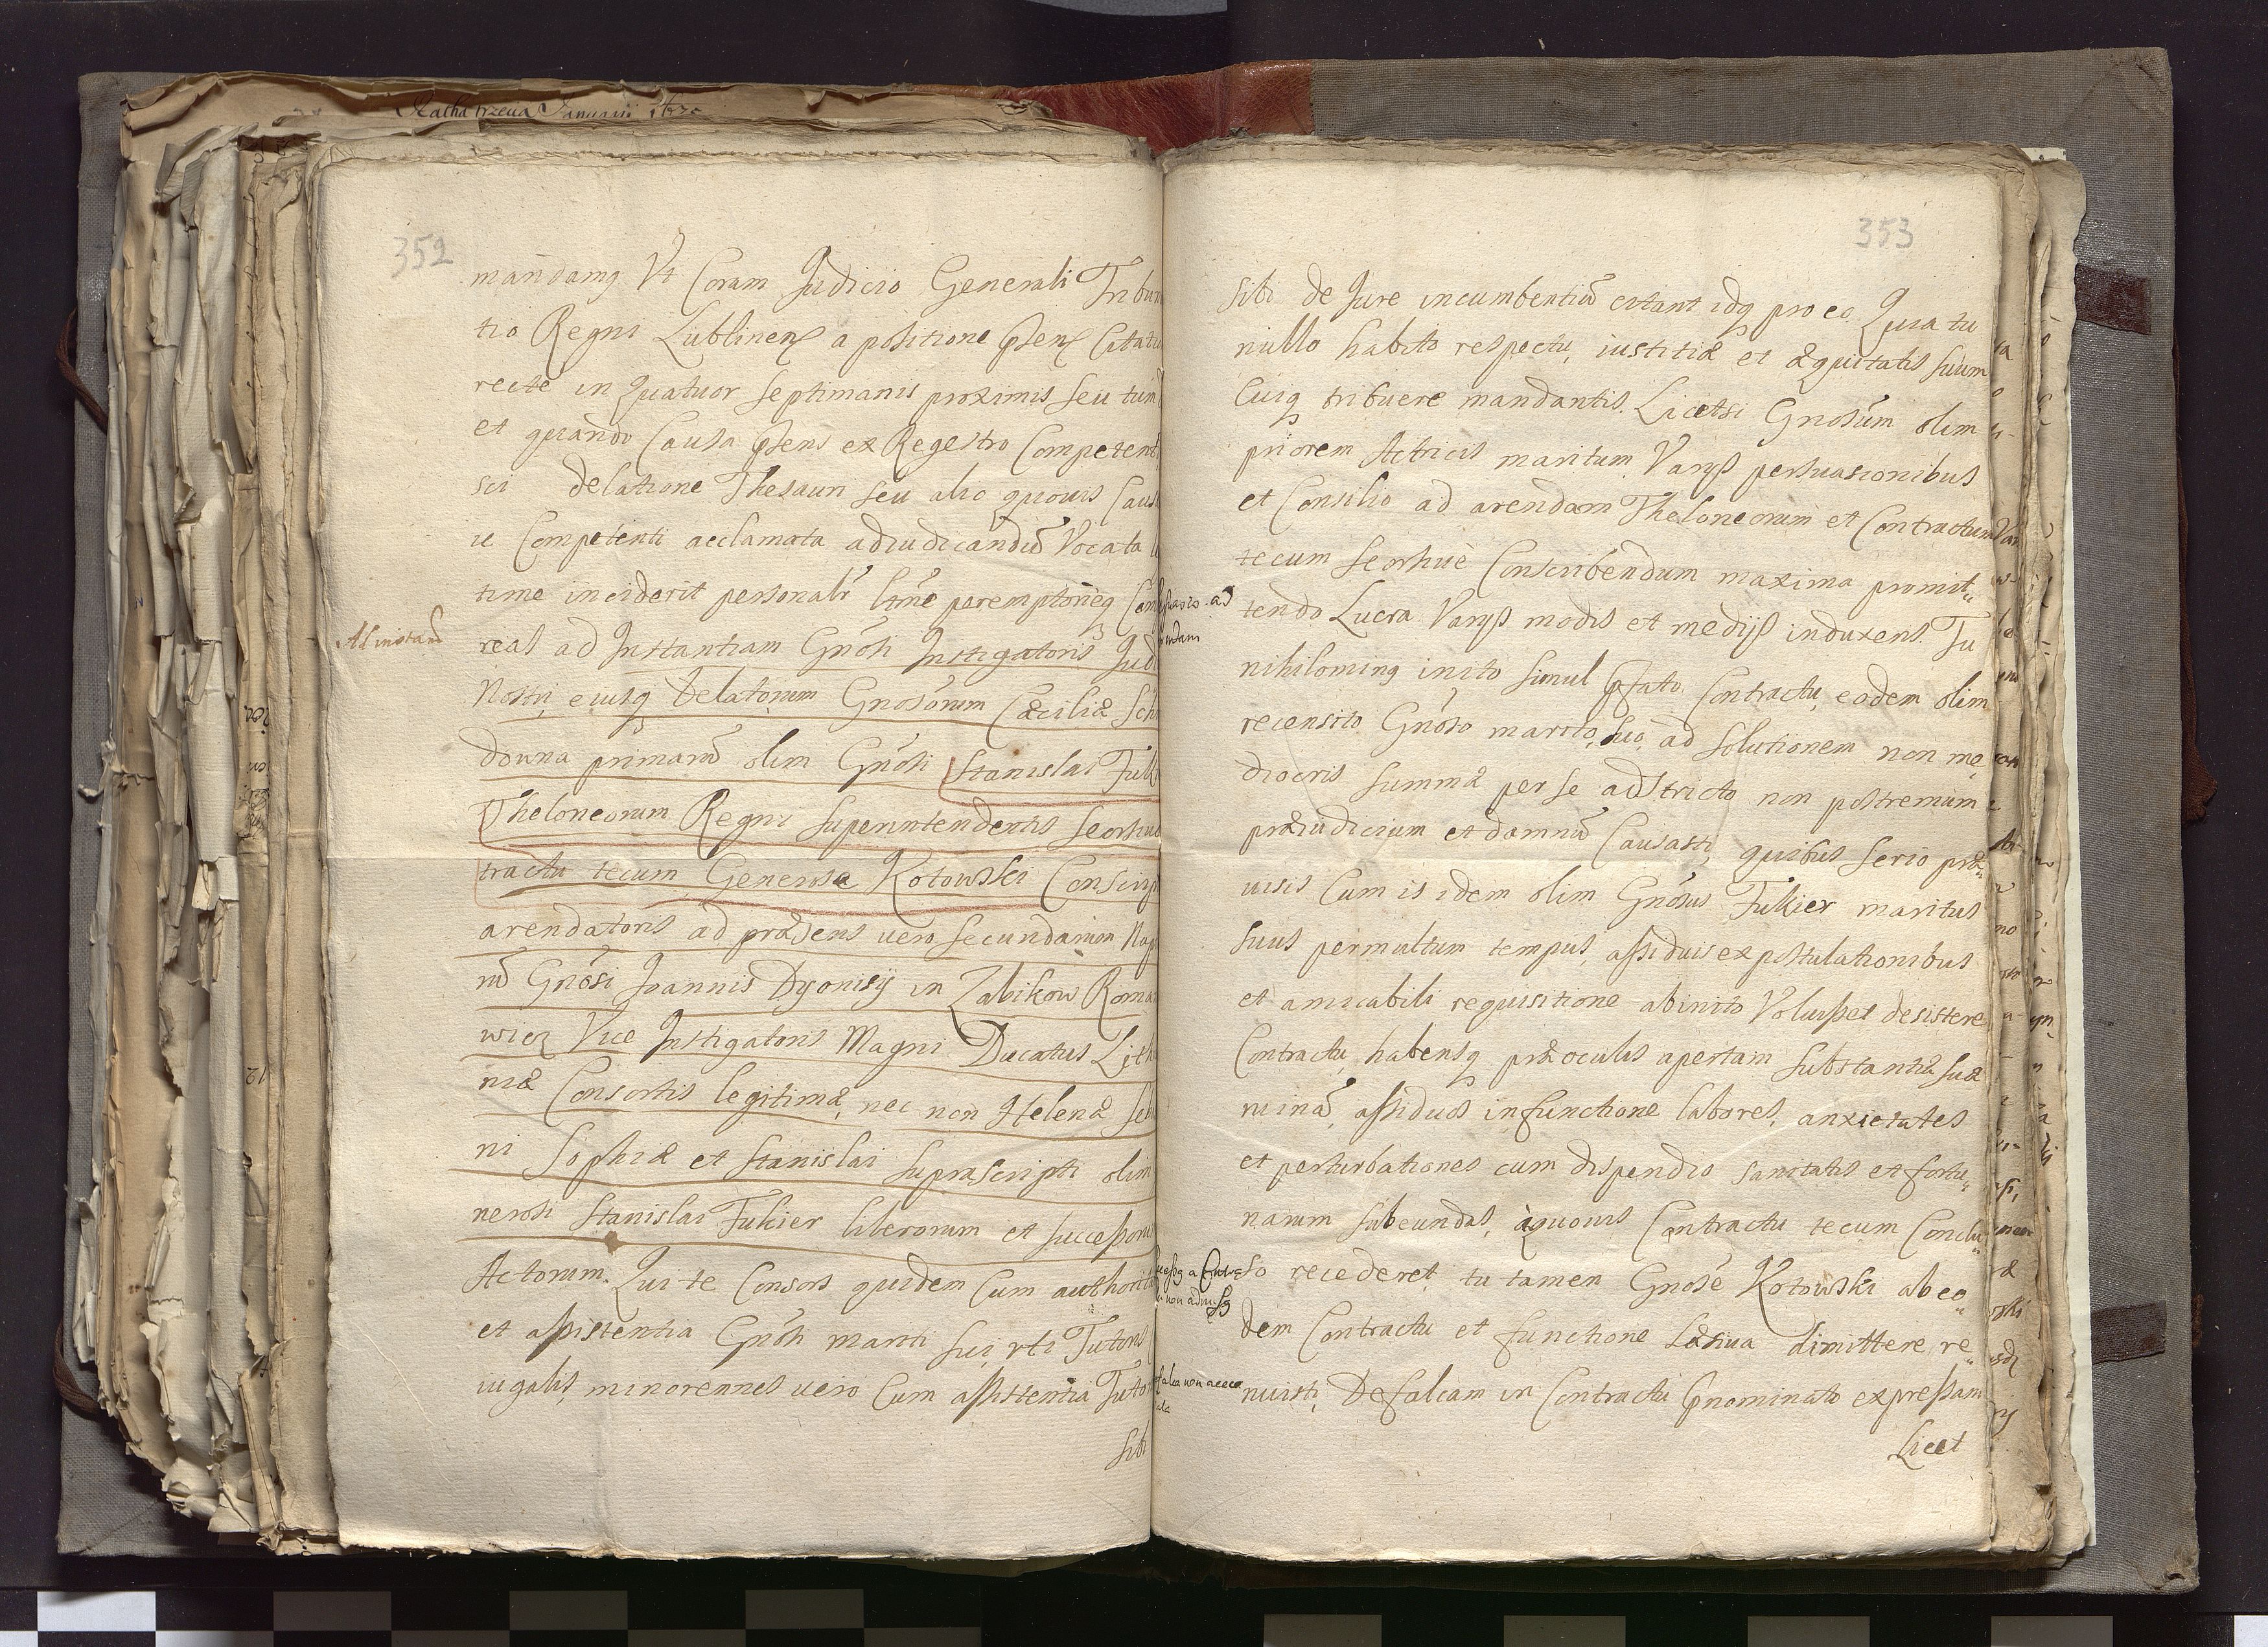 352
mandamq Vt Coram Judicio Generali Tribun
tio Regni Lublinen̄ a positione p̄sen̄ Citatio
recte in Quatuor Septimanis proximis Seu tum
et quando Causa p̄sens ex Regestro Competent
sci delatione Thesauri seu alio quovis Caus
ie Competenti acclamata adiudicandū Vocata
time inciderit personalr̄ ltm̄e peremptorieq Com
Ad instan
reas ad Instantiam Gnōsi Instigatoris Jud
Nostri eiusq Delatorum Gnosōrum Cæciliæ Sch
downa primarū olim Gnōsi Stanislai Fuki
Theloneorum Regni Superintendentis Seorsiue
tractu tecum Generose Kotowski Conscrip
arendatoris ad præsens uero Secundarum Nup
nū Gnōsi Joannis Dyonisij in Zabikow Roma
wicz Vice Instigatoris Magni Ducatus Lith
niæ Consortis legitimæ, nec non Helenæ Seb
ni Sophiæ et Stanislai Suprascripti olim
nerosi Stanislai Fukier liberorum et Successoru
Actorum. Qui te Consors quidem Cum authorita
et assistentia Gnōsi mariti sui, vti Tutoris
iugalis, minorennes uero Cum assistentia Tuto
Sibi
353
Sibi de Jure incumbentiū citant idq pro eo. Quia tu
nullo habito respectu, iustitiæ et æquitatis suum
Cuiq tribuere mandantis. Licetsi Gnosūm olim
priorem Actricis maritum Varijs persuasionibus
et Consilio ad arendam Theloneorum et Contractum
tecum Seorhuè Conscribendum maxima promit„
tendo Lucra Varijs modis et medijs induxens. Tu
nihilominq inito simul p̄fato Contractu, eodem olim
recensito Gnōso marito, suo, ad solutionem non me„
diocris Summæ per se adstricto non postremum
præiudicium et damnū Causasti, quibus serio præ„
uisis Cum is idem olim Gnōsus Fukier maritus
suus permultum tempus, assiduis expostulationibus
et amicabili requisitione abinito Voluisset desistere
Contractu, habensq præ oculis apertam Substantiæ suæ
ruinā, assiduos in functione labores, anxietates
et perturbationes cum dispendio sanitatis et fortu„
narum subeundas, àquouis Contractu tecum Conclu„
so recederet, tu tamen Gnosē Kotowski ab eo„
dem Contractu et functione Læsiua dimittere re„
nuisti, Defalcam in Contractu p̄nominato expressam
Licet